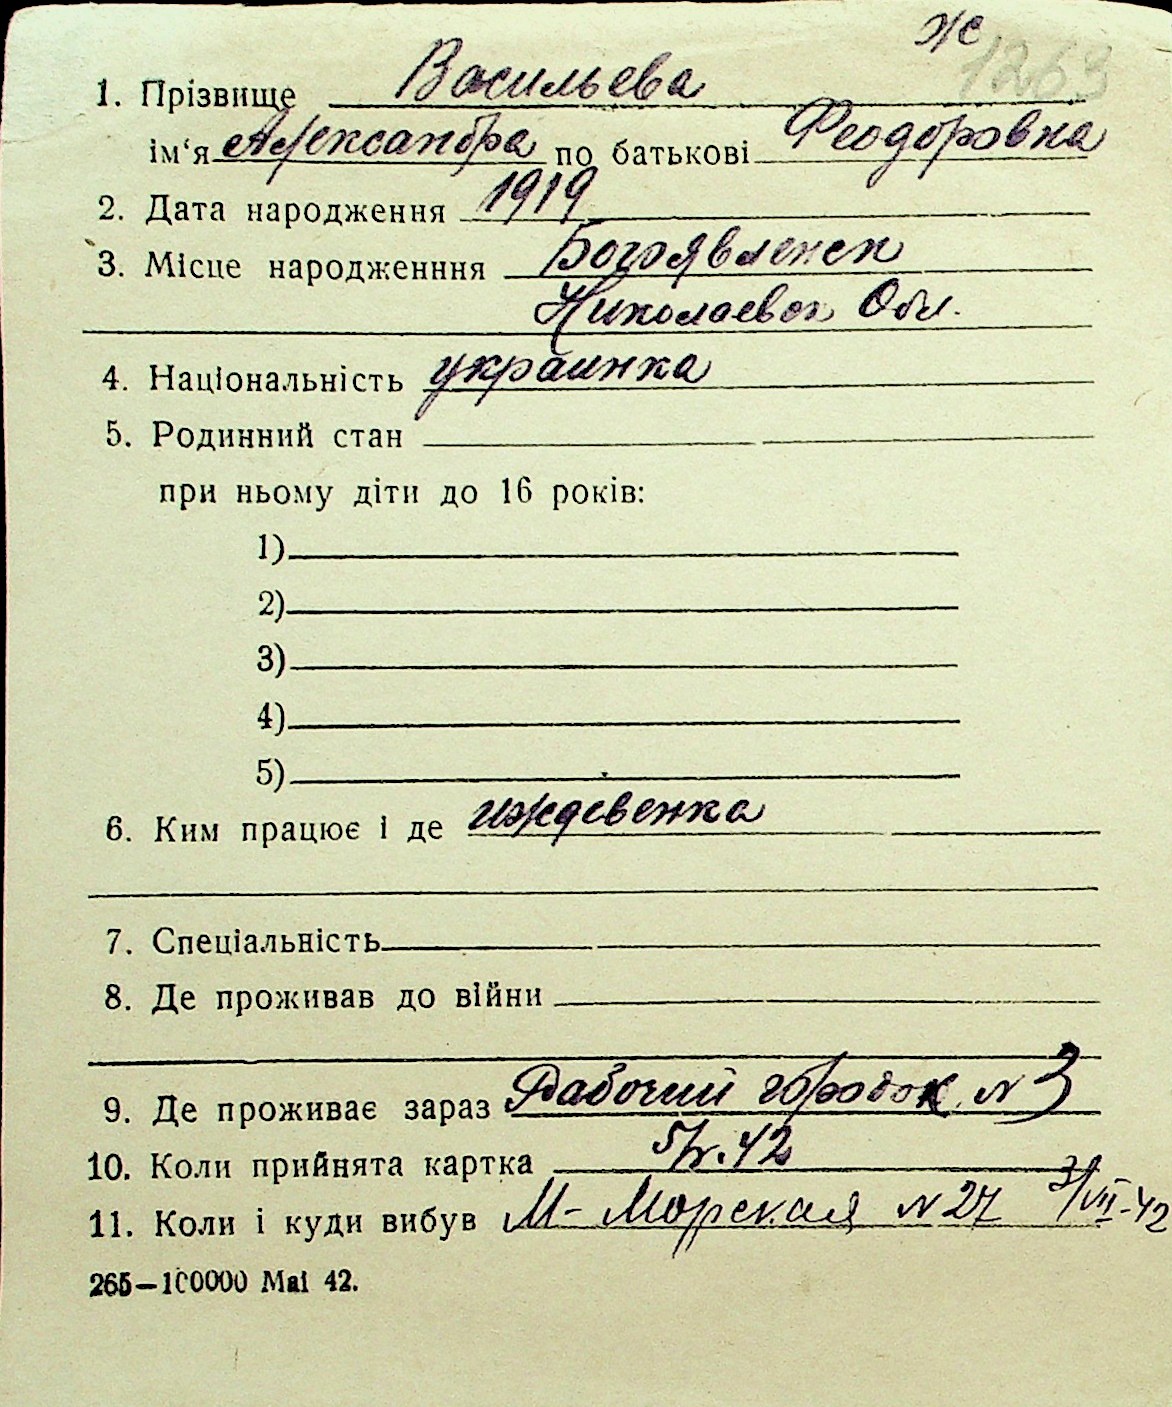 ж
1263
1. Прізвище Васильева
ім‘я Александра по батькові Феодоровна
2. Дата народження 1919
3. Місце народженння Богоявленск
Николаевск Обл.
4. Національність украинка
5. Родинний стан
при ньому діти до 16 років:
1)
2)
3)
4)
5)
6. Ким працює і де иждевенка
7. Спеціальність
8. Де проживав до війни
9. Де проживає зараз Рабочий городок N 3
10. Коли прийнята картка
11. Коли і куди вибув М- Морская N 27 3/VII-42
265—100000 Mai 42.